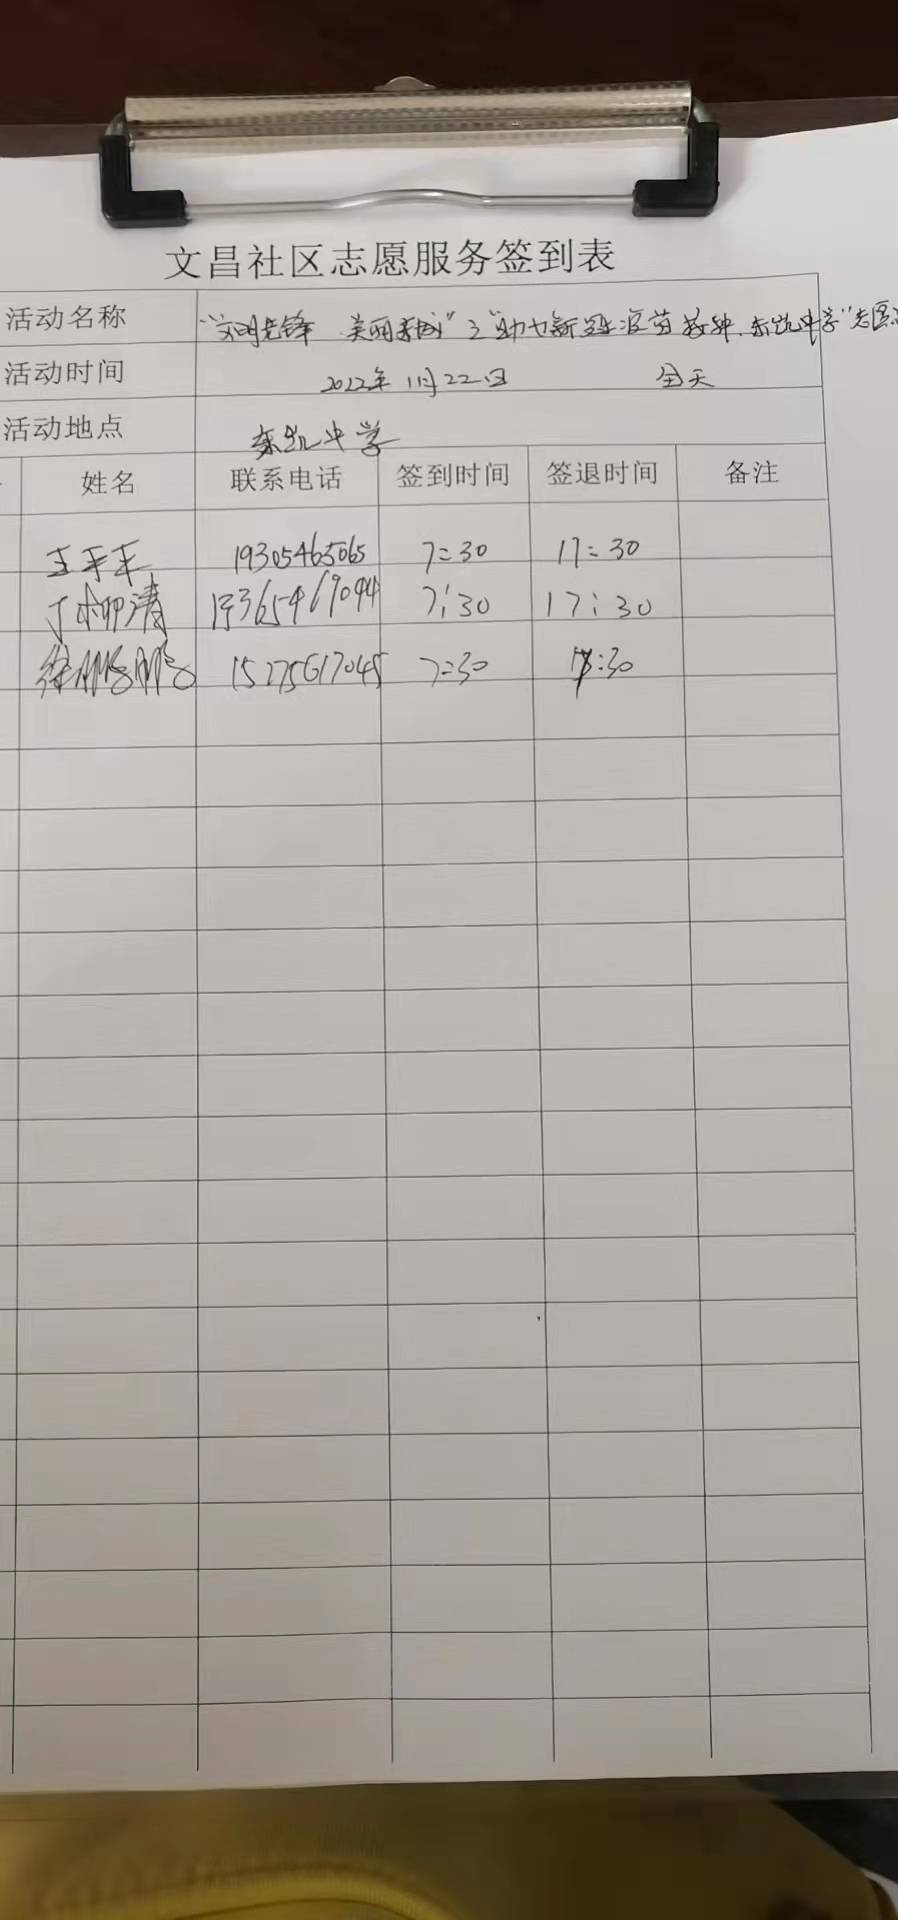 文昌社区志愿服务签到表
活动名称 "文明先锋 美丽东城"之"助力新冠疫苗接种.东凯中学"志愿
活动时间 2022年11月22日 全天
活动地点 东凯中学
姓名 联系电话 签到时间 签退时间 备注
王丰丰 19305465065 7:30 17:30
丁柳清 7:30 17:30
徐鹏鹏 15275617045 7:30 17:30